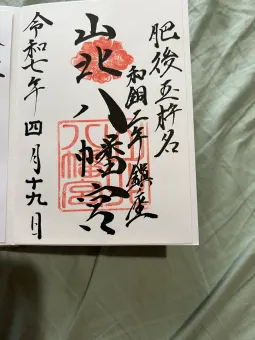 肥後玉杵名
和銅二年鎮座
山北八幡宮
令和七年四月十九日